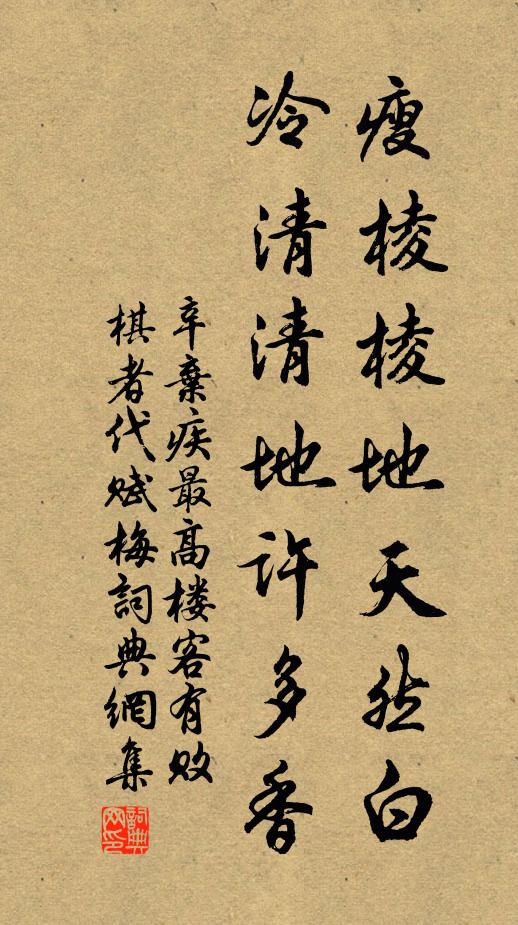 瘦棱棱地天然白
冷清清地许多香
辛棄疾最高楼客有败
棋者代赋梅詞典網集
詞典
网印